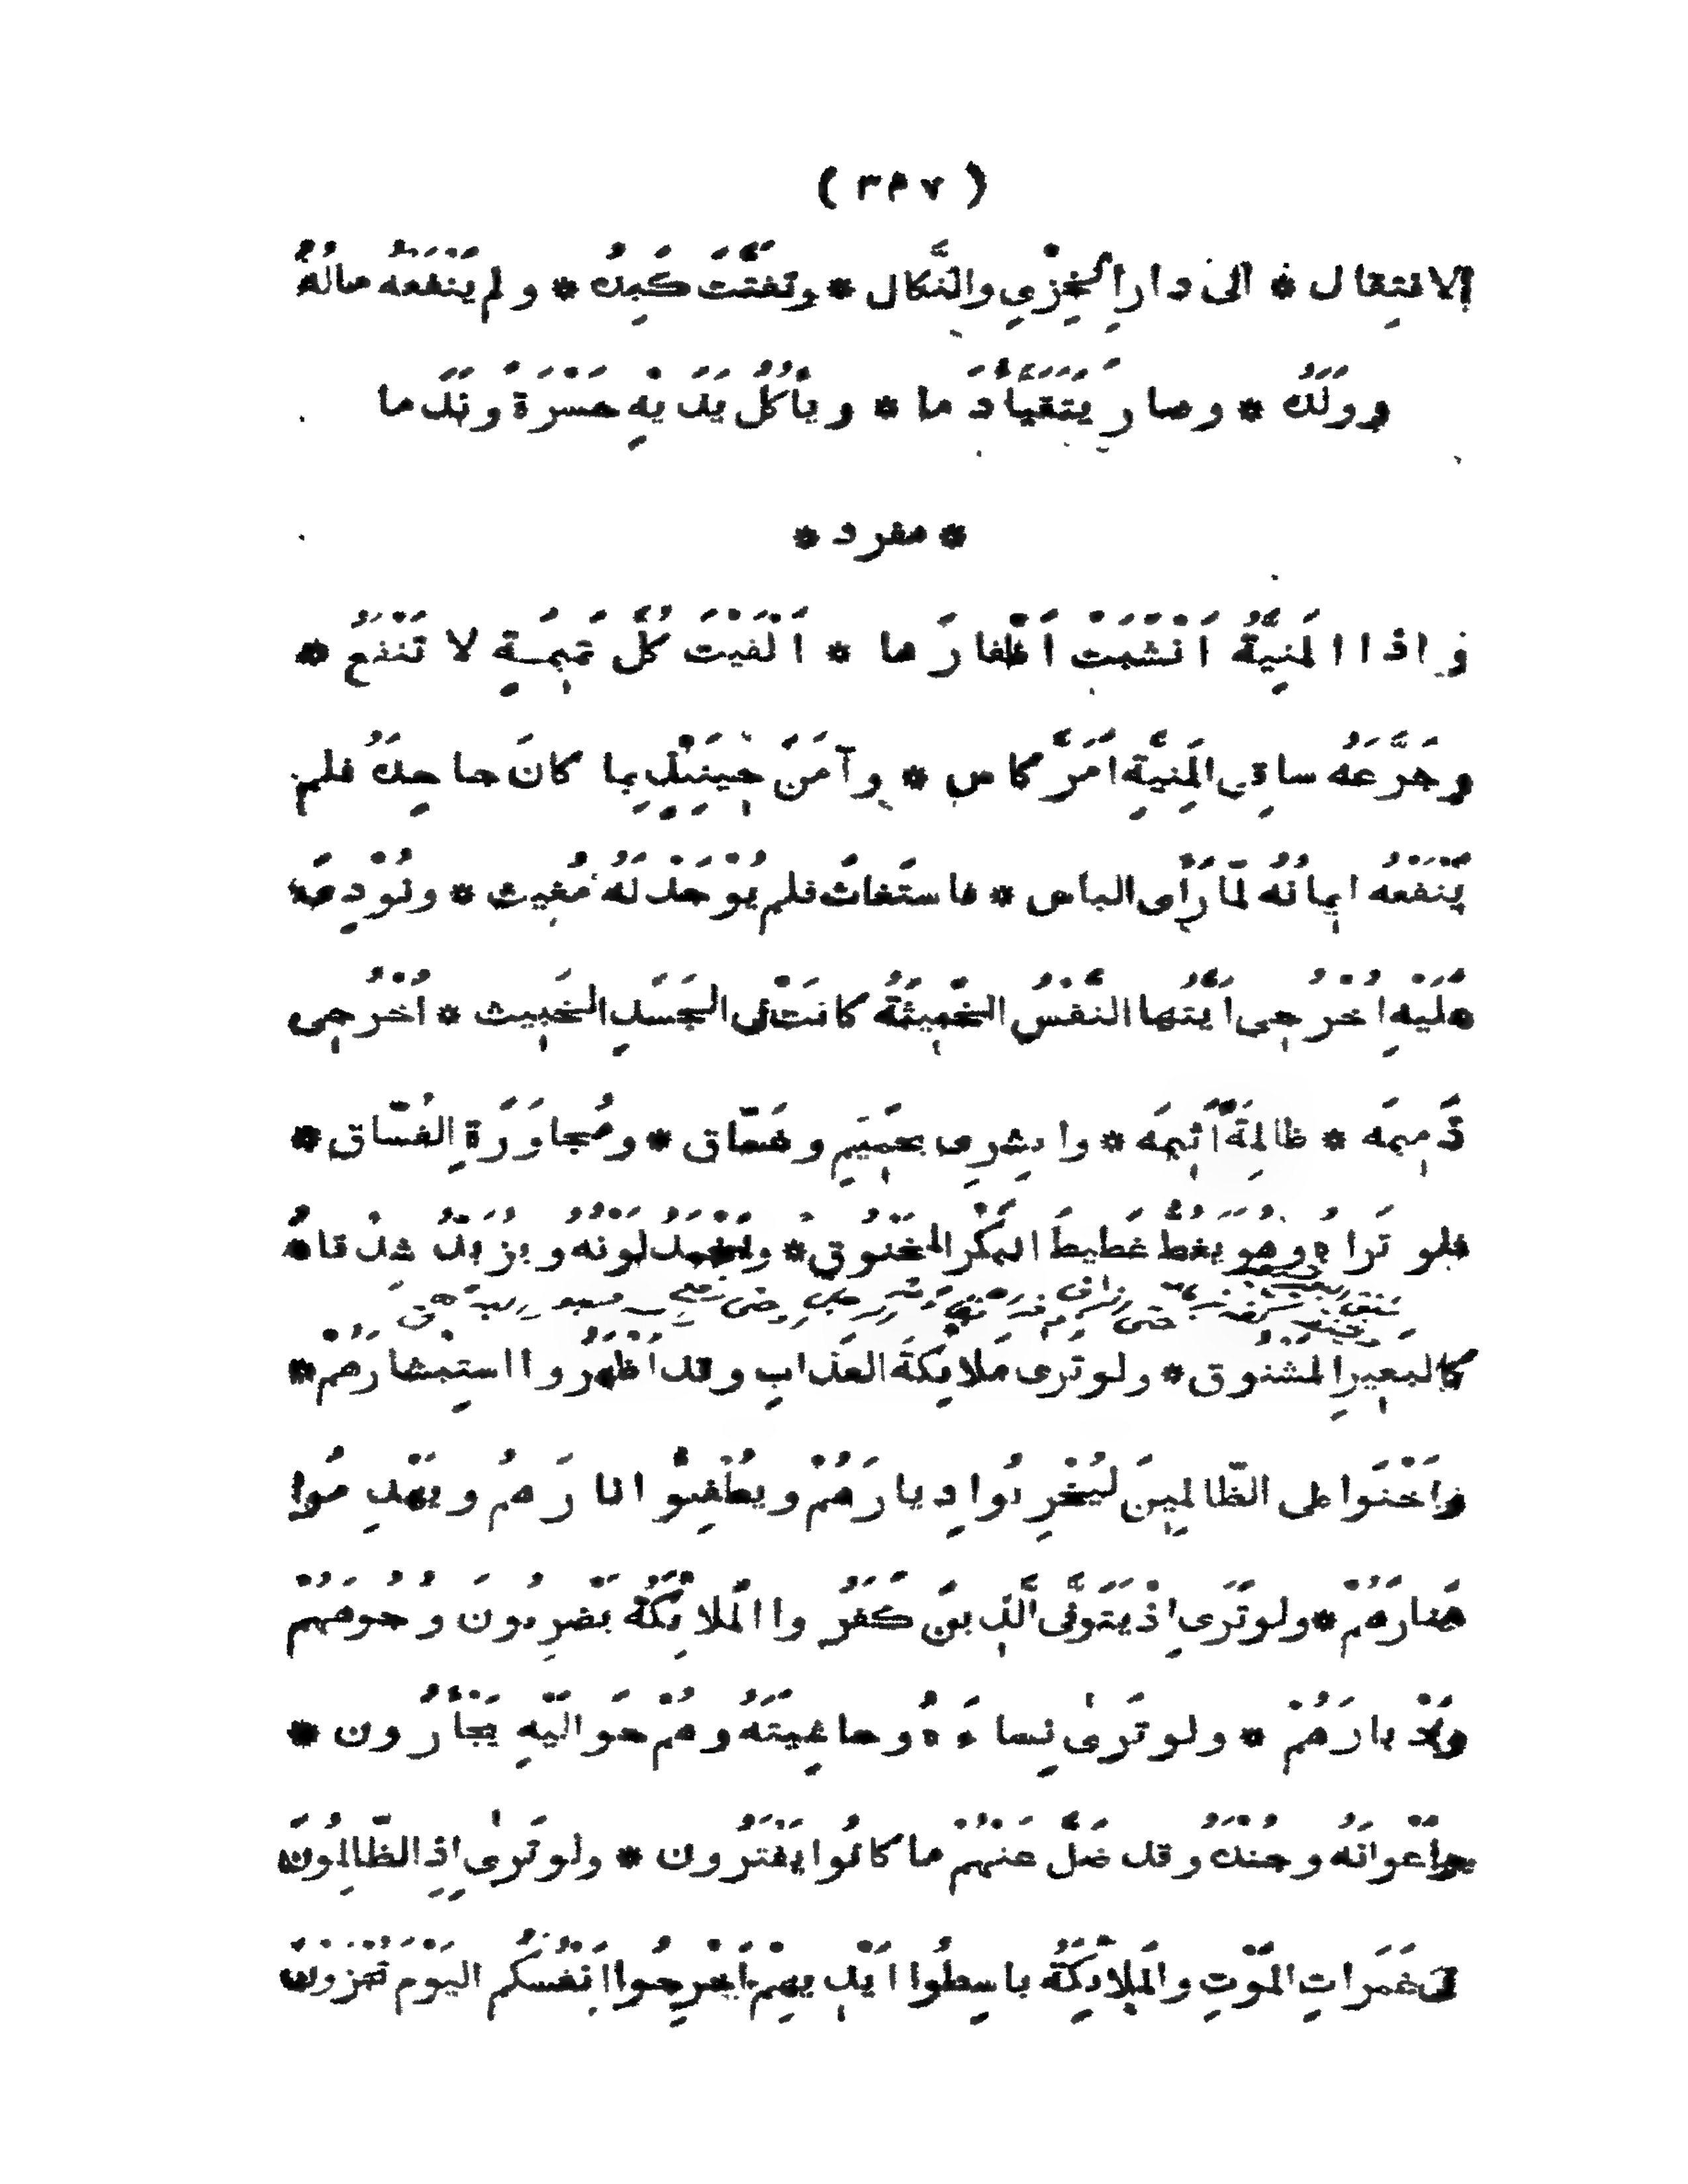 ( ٣٨٧ )
الانتِقال * الى دارِ الخِزْيِ والنَّكال * وتفتَّتَ كَبِدُه * ولم يَنْفَعْهُ مالُهُ
ووَلَدُه * وصار يَتَقَيَّأُ دَما * ويأكُلُ يَدَيْهِ حَسْرَةً ونَدَما
* مفرد *
واذا المَنِيَّةُ اَنْشَبَتْ اَظْفارَها * اَلْفَيْتَ كُلَّ تَمِيمَةٍ لا تَنْفَعُ *
وجَرَّعَهُ ساقِى المَنِيَّةِ اَمَرَّ كاس * وآمَنَ حِينَئِذٍ بِما كانَ جاحِدَهُ فلم
يَنْفَعْهُ اِيمانُهُ لَمّا رَأَى الباس * فاستَغاثَ فلم يُوْجَدْ لَهُ مُغِيث * ونُوْدِىَ
عَلَيْهِ اُخْرُجِى اَيَّتُها النَّفْسُ الخَبِيثَةُ كانَتْ فِى الجَسَدِ الخَبِيث * اُخْرُجِى
ذَمِيمَه * ظالِمَةً اَثِيمَه * وابشِرِى بحَمِيمٍ وغَسّاق * ومُجاوَرَةِ الفُسّاق *
فلو تَراهُ وهُوَ يَغُطُّ غَطِيطَ البَكْرِ المَخْنُوق * ويَخْمُدُ لَوْنُهُ ويُزْبِدُ شِدْقاهُ
كالبَعِيرِ المَشْنُوق * ولو تَرى مَلائِكَةَ العَذابِ وقد اَظْهَرُوا استِبْشارَهُمْ *
واَخْنَوا على الظّالِمِينَ لِيُخْرِبُوا دِيارَهُمْ ويُطْفِئُوا نارَهُم ويَهْدِمُوا
مَنارَهُمْ * ولو تَرَى اِذْ يَتَوَفَّى الَّذِينَ كَفَرُوا المَلائِكَةُ يَضْرِبُونَ وُجُوهَهُمْ
واَدْبارَهُمْ * ولو تَرىٰ نِساءَهُ وحاشِيَتَهُ وهُمْ حَوالَيْهِ يَجْأَرُون *
واَعْوانَهُ وجُنْدَهُ وقد ضَلَّ عَنْهُمْ ما كانُوا يَفْتَرُون * ولو تَرىٰ اِذِ الظّالِمُونَ
فِى غَمَراتِ المَوْتِ والمَلائِكَةُ باسِطُوا اَيْدِيهِمْ اَخْرِجُوا اَنْفُسَكُم اليَوْمَ تُجْزَوْنَ